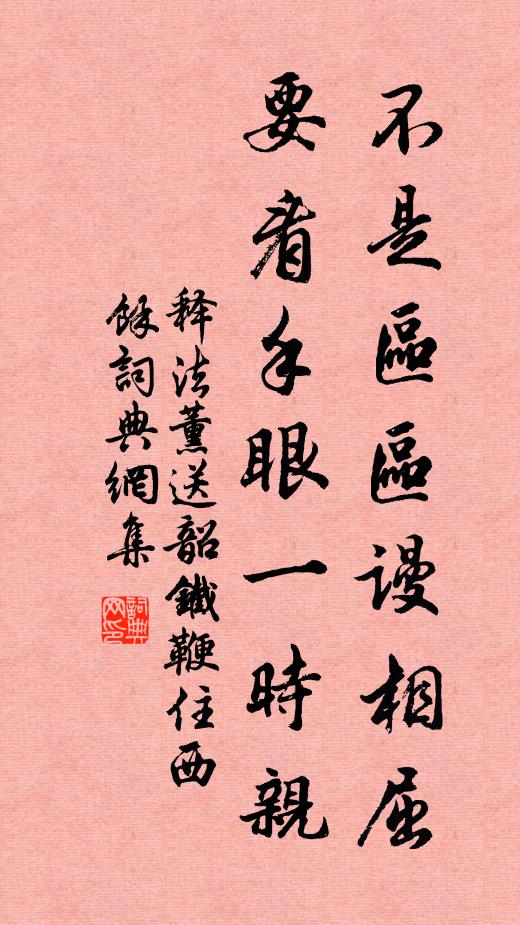 不是區區謾相屈
要看手眼一時親
释法薰送韶鐵鞭住西
餘詞典網集
詞典网印